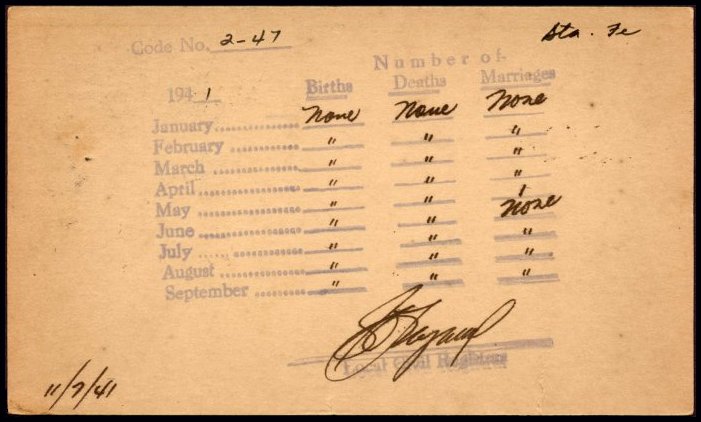 Code No. 2-47 Sta. Fe
Number of
194 1 Births Deaths Marriages
January .............. None None None
February ............ " " "
March ............... " " "
April ................ " " "
May ................. " " 1
June ................ " " None
July ................ " " "
August ............. " " "
September ........... " " "
Local Civil Registrar
11/7/41